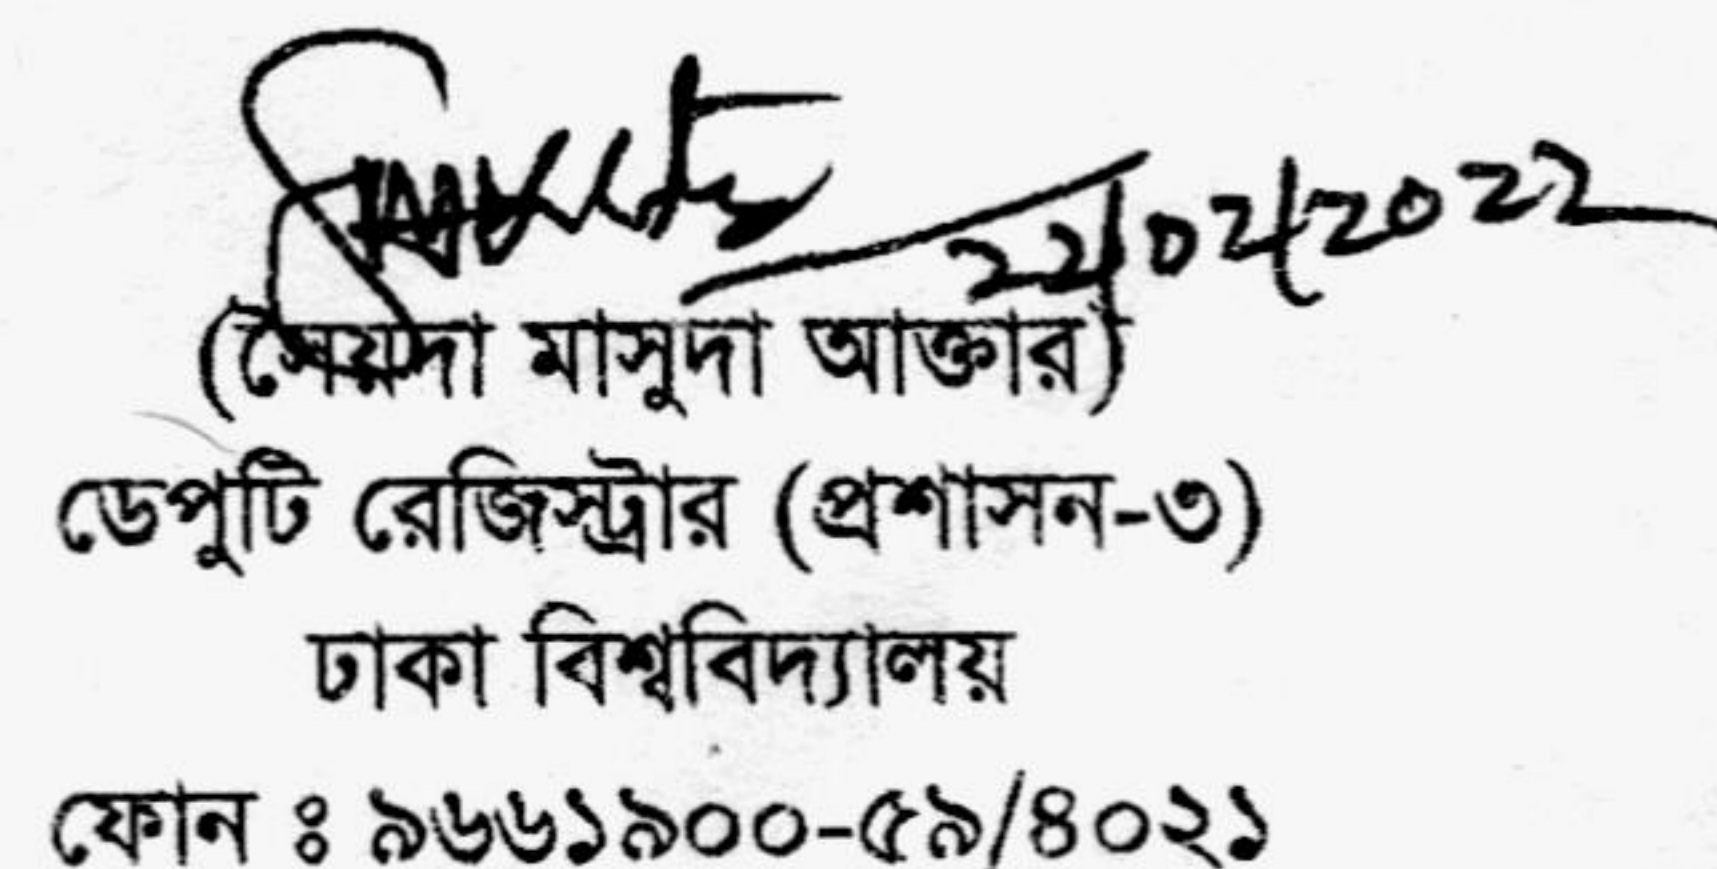 22/02/2022
(সৈয়দা মাসুদা আক্তার)
ডেপুটি রেজিস্ট্রার (প্রশাসন-৩)
ঢাকা বিশ্ববিদ্যালয়
ফোন : ৯৬৬১৯০০-৫৯/৪০২১